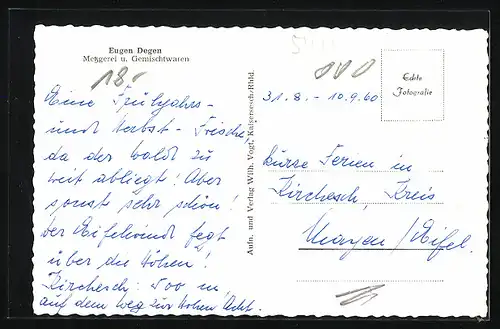 Eugen Degen
Metzgerei u. Gemischtwaren
18.-
Eine Frühjahrs-
und Herbst-Frische,
da der Wald zu
weit abliegt! Aber
sonst sehr schön!
Der Eifelwind fegt
über die Höhen!
Kirchesch: 500 m,
auf dem Weg zur Hohen Acht.
Aufn. und Verlag Wilh. Vogt, Kaisersesch/Rhld.
Echte
Fotografie
31.8. - 10.9.60
kurze Ferien in
Kirchesch, Kreis
Mayen/Eifel.